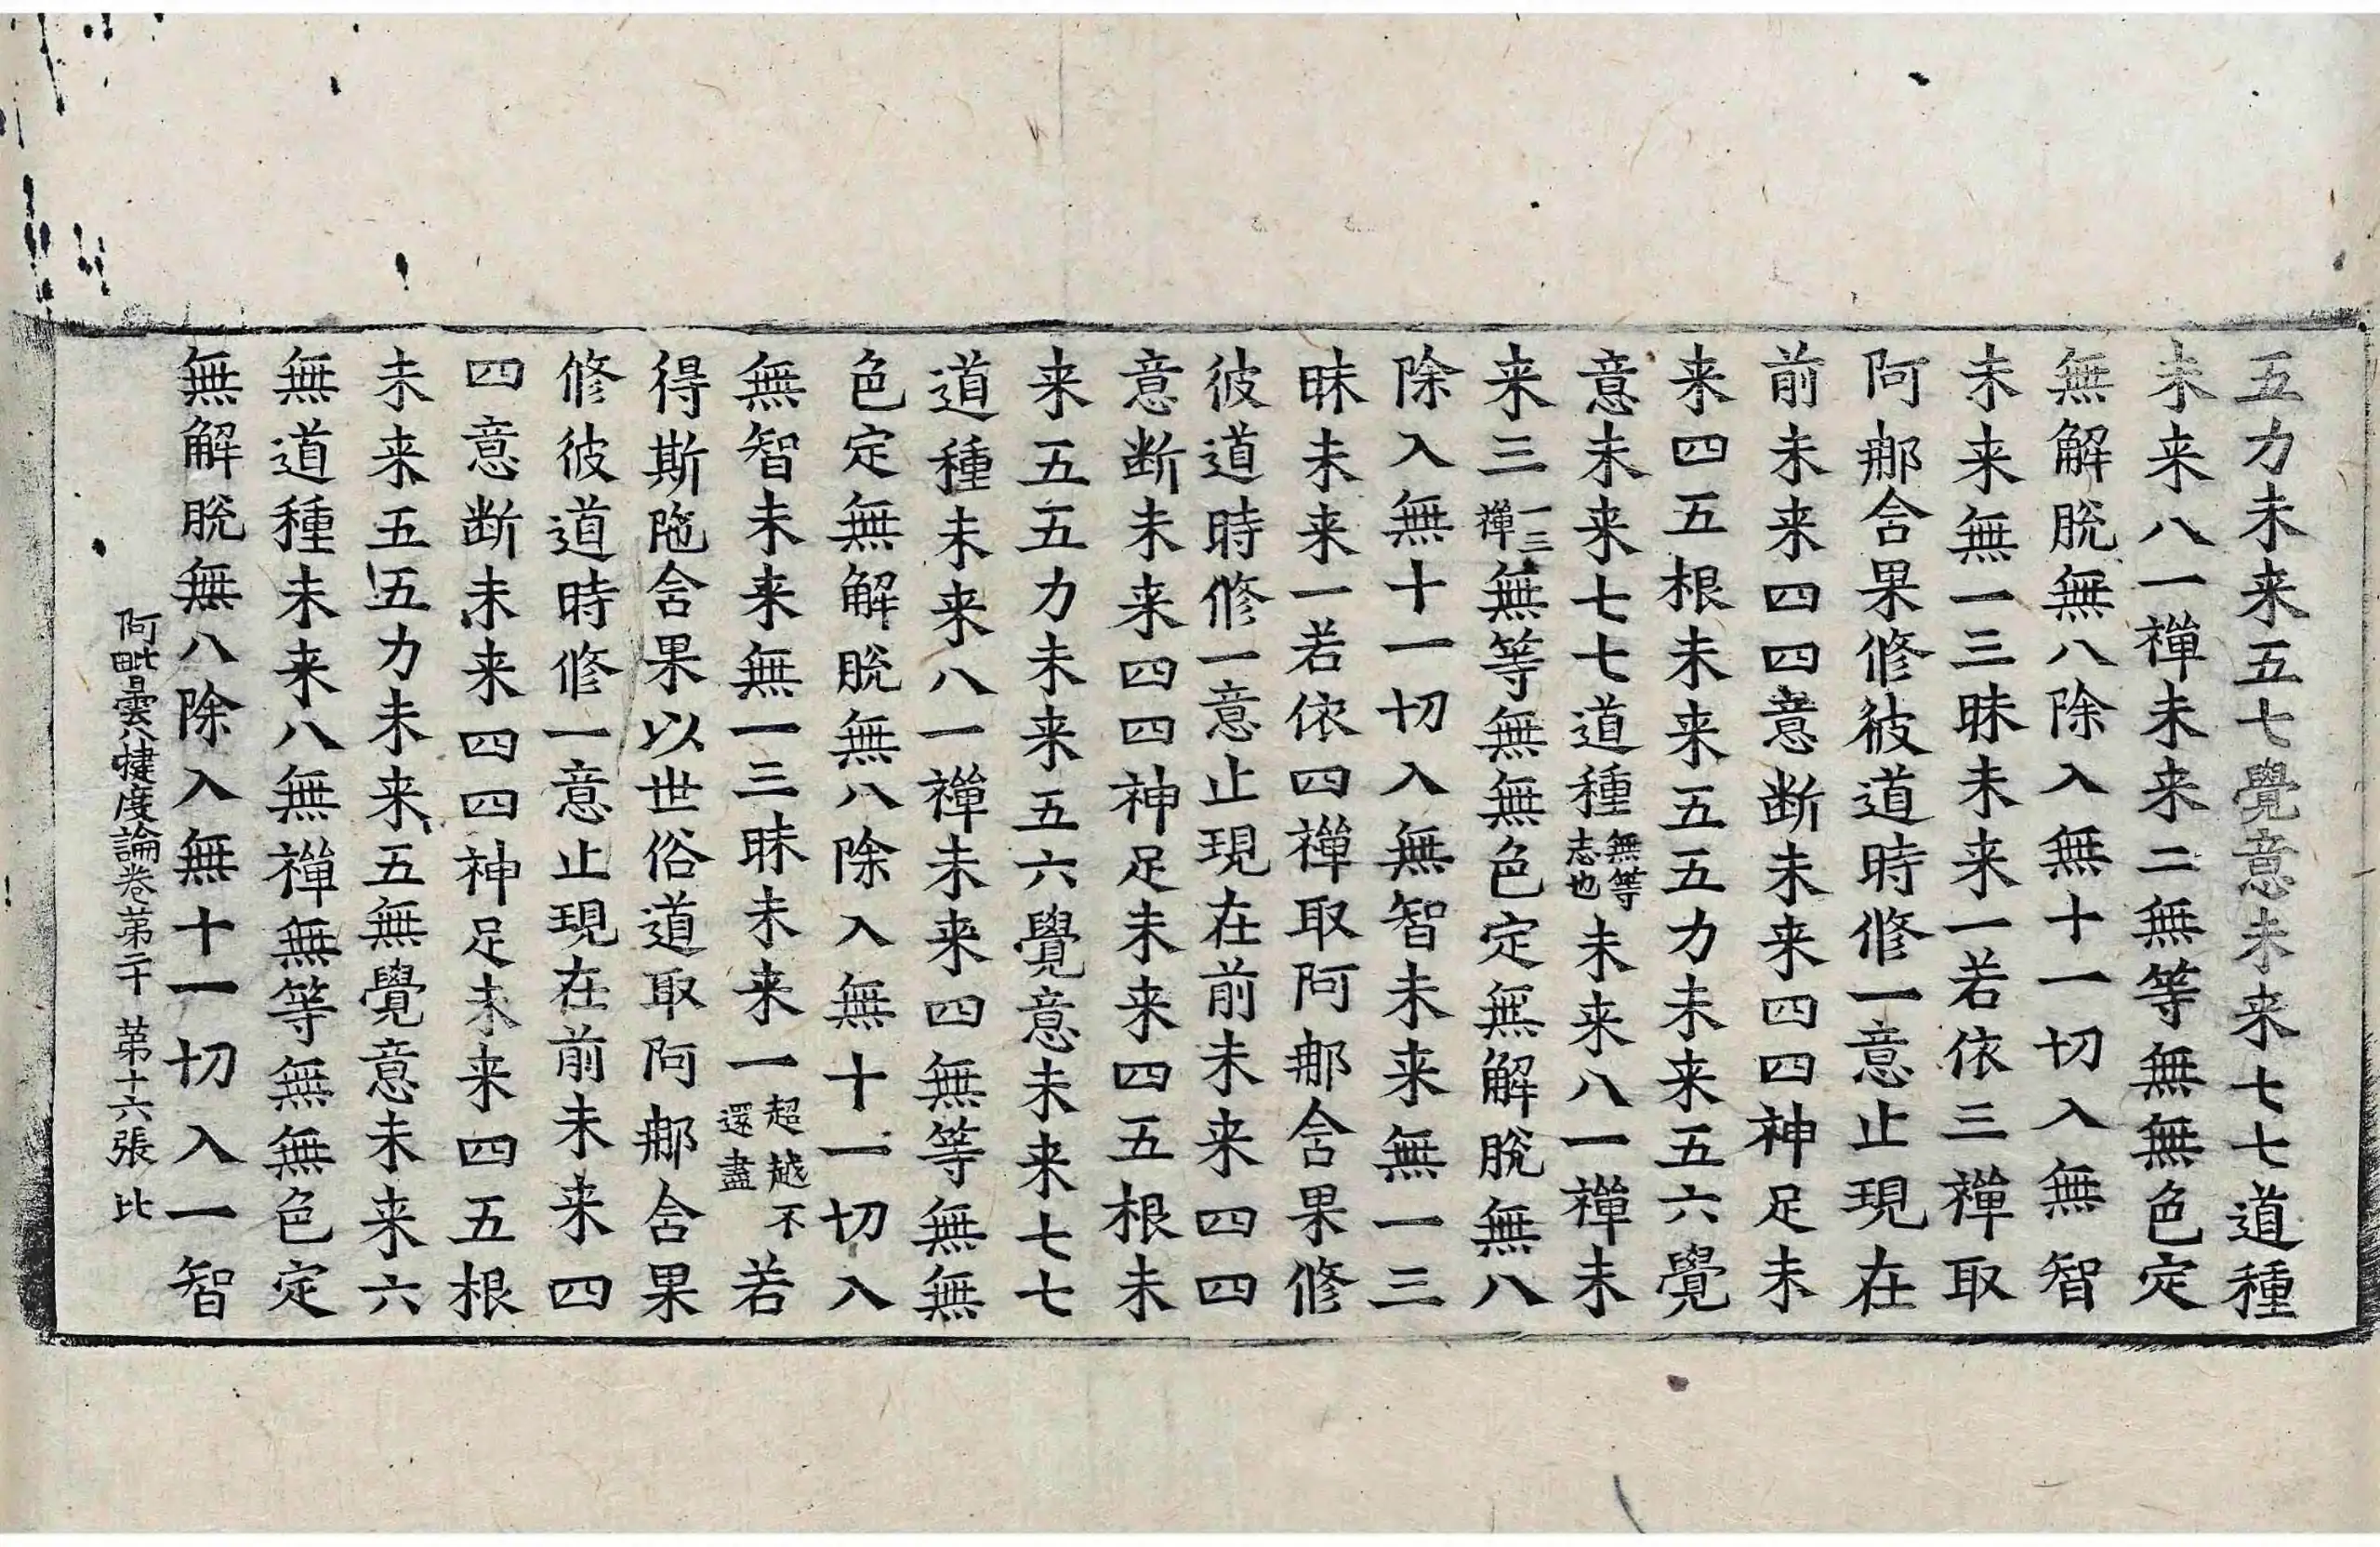 五力未来五七覺意未来七七道種
未来八一禪未来二無等無無色定
無解脫無八除入無十一切入無智
未来無一三昧未来一若依三禪取
阿那含果修彼道時修一意止現在
前未来四四意断未来四四神足未
来四五根未来五五力未来五六覺
意未来七七道種無等志也未来八一禪未
来三一三禪無等無無色定無解脫無八
除入無十一切入無智未来無一三
昧未来一若依四禪取阿那含果修
彼道時修一意止現在前未来四四
意断未来四四神足未来四五根未
来五五力未来五六覺意未来七七
道種未来八一禪未来四無等無無
色定無解脫無八除入無十一切入
無智未来無一三昧未来一超越不還盡若
得斯陁含果以世俗道取阿那含果
修彼道時修一意止現在前未来四
四意断未来四四神足未来四五根
未来五五力未来五無覺意未来六
無道種未来八無禪無等無無色定
無解脫無八除入無十一切入一智
阿毗曇八犍度論卷第二十 第十六張 比